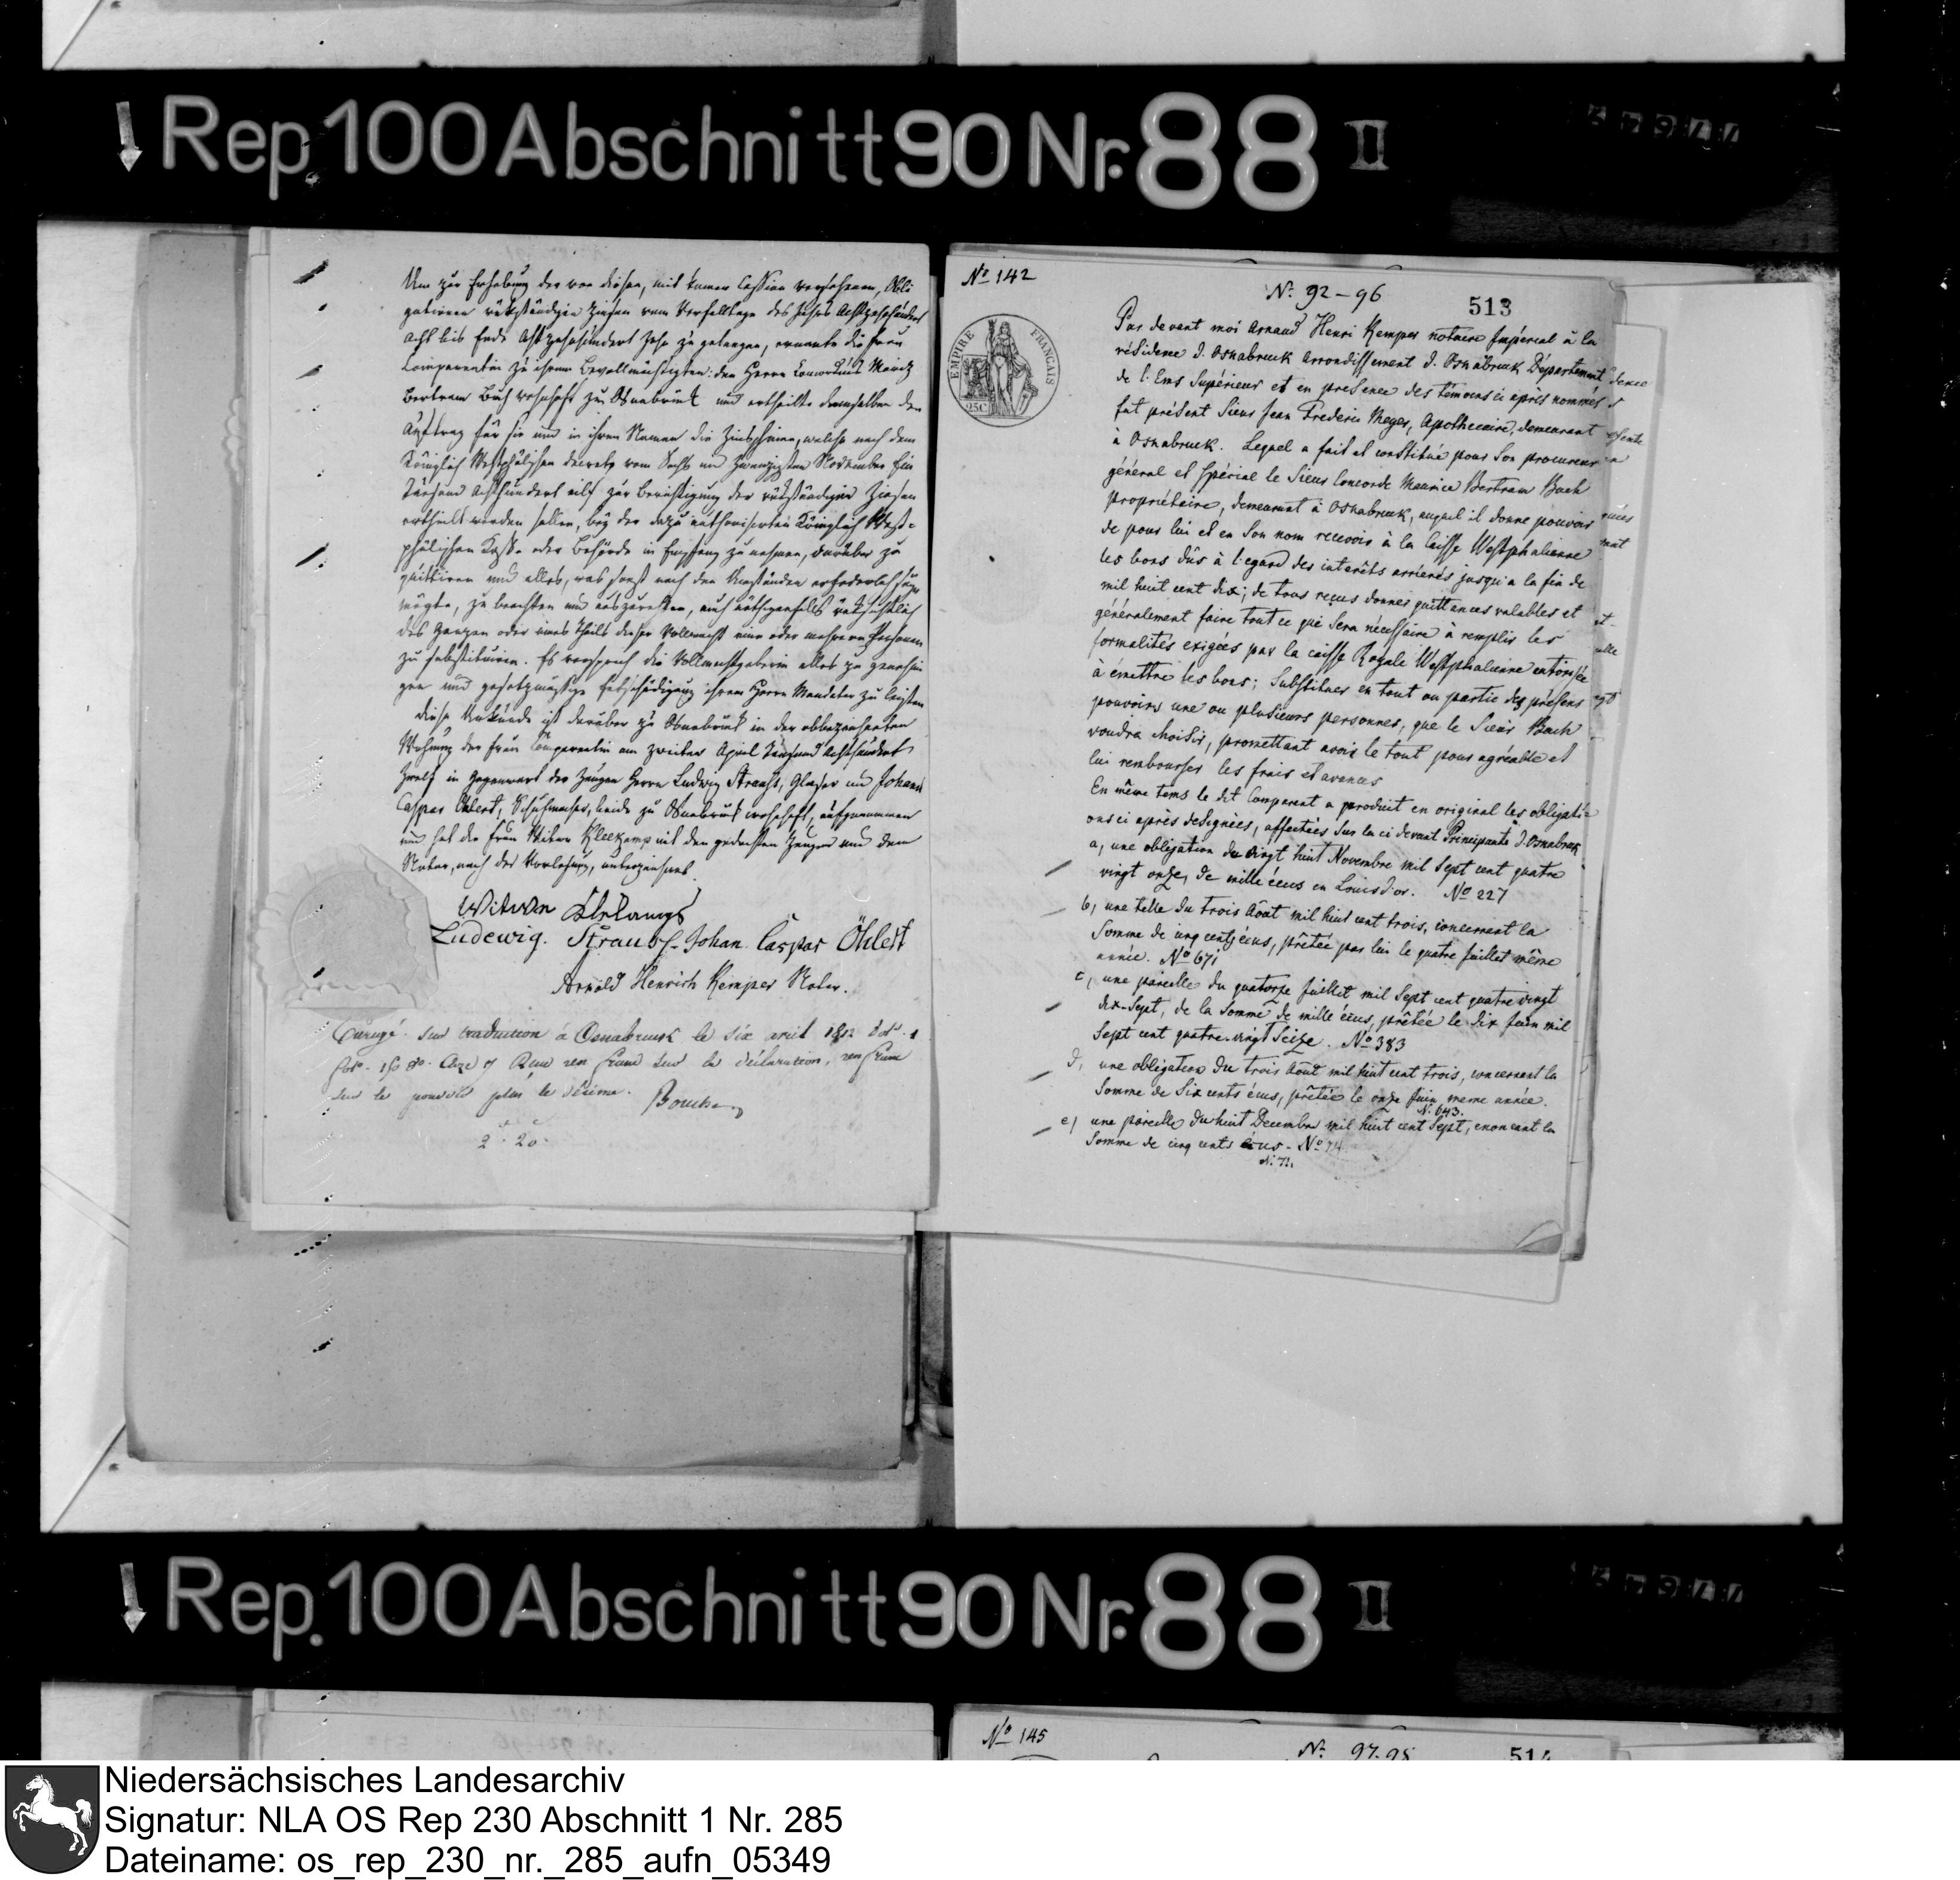 Rep. 100 Abschnitt 90 Nr. 88 II
Um zur Erhebung der von diesen, mit keinem Cession versehenen, Obli-
gationen rückständigen Zinsen vom Verfalltage des Jahrs Achtzehnhundert
Acht bis Ende Achtzehnhundert Zehn zu gelangen, ernannte die Frau
Comparentin zu ihrem Bevollmächtigten: den Herrn Concordius Moritz
Bertram Buch wohnhaft zu Osnabrück und ertheilte demselben den
Auftrag für sie und in ihrem Namen die Zinsscheine, welche nach dem
Königlich Westphälischen Decrete vom Sechs und Zwanzigsten November Ein
Tausend Achthundert eilf zur Berichtigung der rückständigen Zinsen
ertheilt werden sollen, bey der dazu authorisirten Königlich West-
phälischen Casse oder Behörde in Empfang zu nehmen, darüber zu
quittiren und alles, was sonst nach den Umständen erforderlich seyn
mögte, zu beachten und auszurichten, auch nöthigenfalls rücksichtlich
des Ganzen oder eines Theils dieser Vollmacht eine oder mehrere Personen
zu substituiren. Es versprach die Vollmachtgeberin alles zu genehmi
gen und gesetzmässige Entschädigung ihrem Herrn Mandatar zu leisten
Diese Urkunde ist darüber zu Osnabrück in der obbezeichneten
Wohnung der Frau Comparentin am zweiten April Tausend Achthundert
Zwölf in Gegenwart der Zeugen Herrn Ludwig Strauss, Glaser und Johann
Caspar Öhlert, Schuhmacher, beide zu Osnabrück wohnhaft, aufgenommen
und hat die Frau Witwe Kleekamp mit den gedachten Zeugen und dem
Notar, nach der Vorlesung, unterzeichnet.
Witwen Klekamp
Ludewig. Strauss. Johan Caspar Öhlert
Arnold Henrich Kemper Notar.
Enregé. sur traduction à Osnabruck le six avril 1812 vol. 1
fol. 150 Reçu un franc sur la déclaration, un franc
sur le pouvoir plus le décime. Boucher
2 f 20 c
No 142
EMPIRE FRANÇAIS
25C
N: 92-96
513
Par devant moi Arnaud Henri Kemper notaire Impérial à la
résidence d. Osnabruck Arrondissement d. Osnabruck Département
de l'Ems Supérieur et en presence des témoins ci après nommés
fut présent Sieur Jean Frederic Meyer, Apothecaire, demeurant
à Osnabruck. Lequel a fait et constitué pour son procureur
général et spécial le Sieur Concorde Maurice Bertram Buch
propriétaire, demeurant à Osnabruck, auquel il donne pouvoir
de pour lui et en son nom recevoir à la caisse Westphalienne
les bons dûs à l'egard des interêts arrierés jusqu'a la fin de
mil huit cent dix; de tous reçus donner quittances valables et
généralement faire tout ce qui sera nécessaire à remplir les
formalités exigées par la caisse Royale Westphalienne autorisée
à émettre les bons; Substituer en tout ou partie des présens
pouvoirs une ou plusieurs personnes, que le Sieur Buch
voudra choisir, promettant avoir le tout pour agréable et
lui rembourser les frais et avances
En même tems le dit Comparent a produit en original les obligati-
ons ci après designées, affectées sur la ci devant Principauté d. Osnabruk
a, une obligation du vingt huit Novembre mil Sept cent quatre
vingt onze, de mille écus en Louis d'or. No 227
b, une telle du trois Août mil huit cent trois, concernent la
Somme de cinq cents écus, prêtée par lui le quatre Juillet même
année. No 671
c, une pareille du quatorze Juillet mil Sept cent quatre vingt
dix-Sept, de la Somme de mille écus, prêtée le dix Juin mil
Sept cent quatre-vingt Seize. No 383
d, une obligation du trois Août mil huit cent trois, concernent la
Somme de Six cents écus, prêtée le onze Juin meme année.
N. 643.
e) une pareille du huit Decembre mil huit cent Sept, enoncant la
Somme de cinq cents écus. No 74
N. 71.
Rep. 100 Abschnitt 90 Nr. 88 II
No 145
N: 97.98
514
Niedersächsisches Landesarchiv
Signatur: NLA OS Rep 230 Abschnitt 1 Nr. 285
Dateiname: os_rep_230_nr._285_aufn_05349